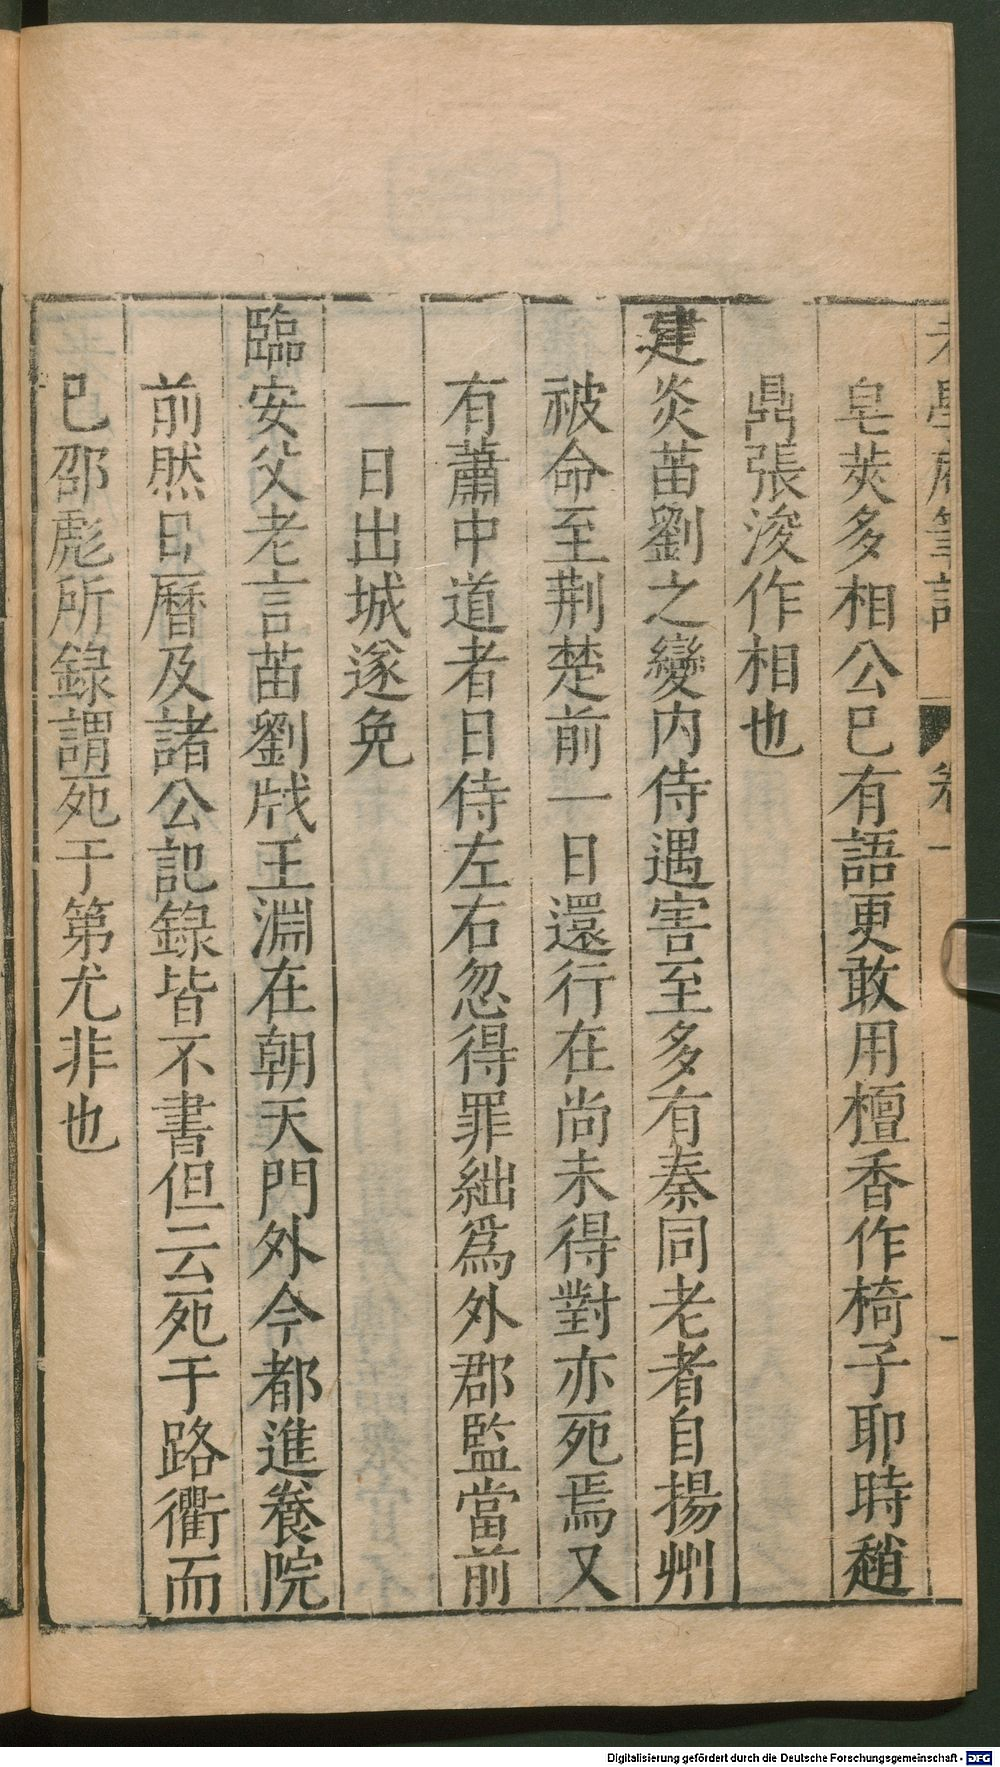 老學庵筆記 卷一 一
皂莢多相公已有語更敢用檀香作椅子耶時趙
鼎張浚作相也
建炎苗劉之變内侍遇害至多有秦同老者自揚州
被命至荆楚前一日還行在尚未得對亦死焉又
有蕭中道者日侍左右忽得罪絀爲外郡監當前
一日出城遂免
臨安父老言苗劉戕王淵在朝天門外今都進奏院
前然日曆及諸公記錄皆不書但云死于路衢而
已邵彪所錄謂死于第尤非也
Digitalisierung gefördert durch die Deutsche Forschungsgemeinschaft - DFG